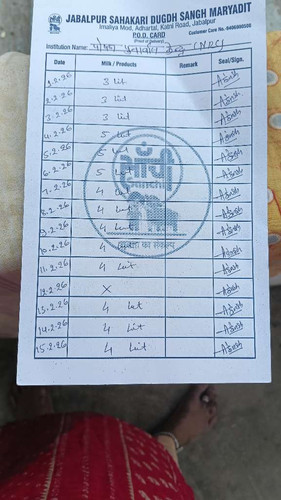 JABALPUR SAHAKARI DUGDH SANGH MARYADIT
Imaliya Mod, Adhartal, Katni Road, Jabalpur
P.O.D. CARD
(Proof of Delivery)
Customer Care No.-6406000506
Institution Name: (NRC)
Date Milk / Products Remark Seal/Sign.
1.2.26 3 lit
2.2.26 3 lit
3.2.26 3 lit
4.2.26 5 lit
5.2.26 5 lit
6.2.26 5 lit
7.2.26 4 lit
8.2.26 4 lit
9.2.26 4 lit
10.2.26 4
11.2.26 4 Lit
12.2.26 ×
13.2.26 4 Lit
14.2.26 4 Lit
15.2.26 4 Lit
साँची
Sanchi
का संकल्प